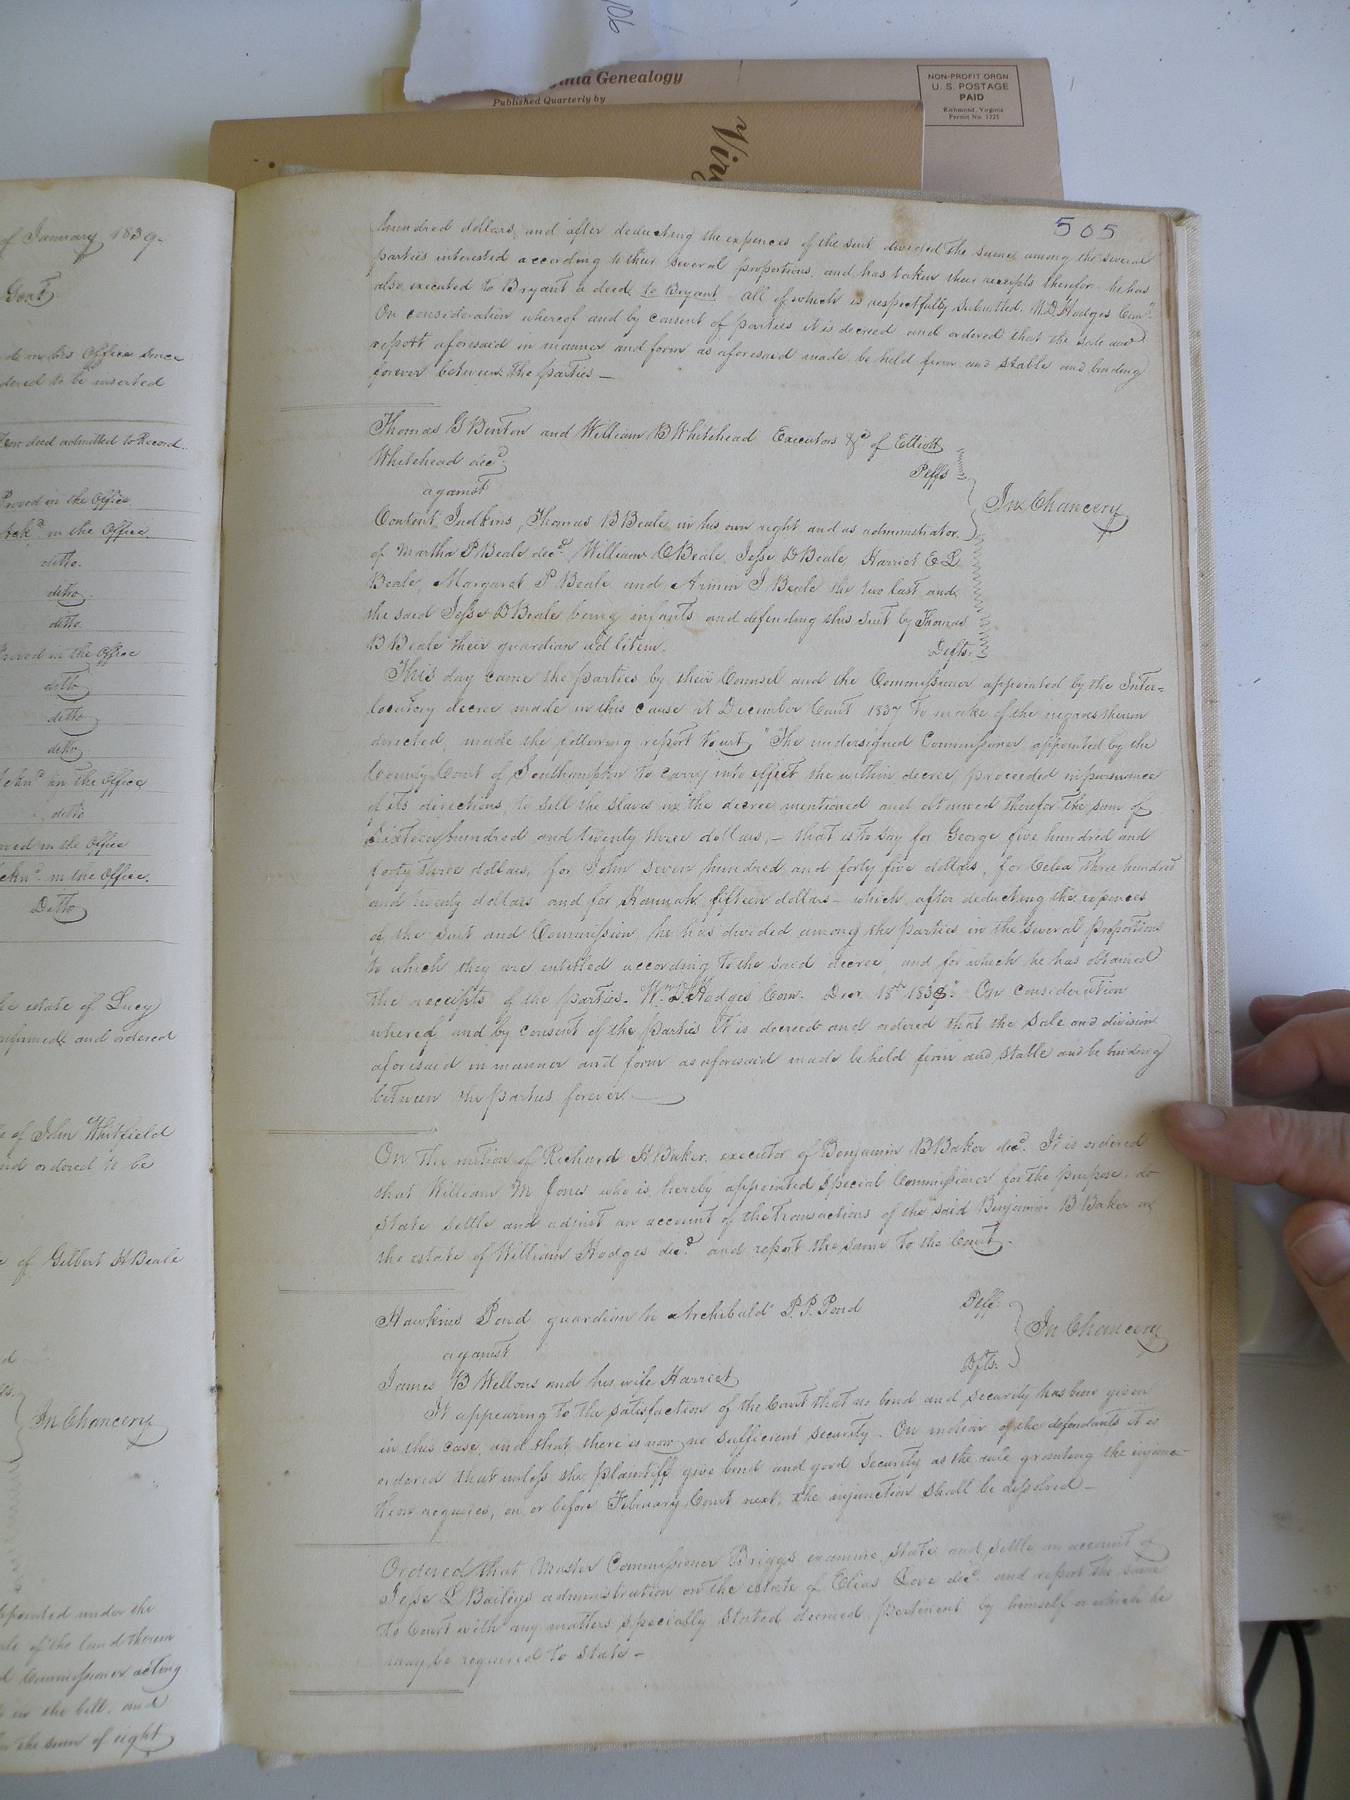 106
Virginia Genealogy
Published Quarterly by
NON-PROFIT ORGN
U. S. POSTAGE
PAID
Richmond, Virginia
Permit No. 1225
Vir
of January 1839.
Gent
made in his Office since
ordered to be inserted
deed admitted to Record.
Proved in the Office
Ackd in the Office
ditto.
ditto.
ditto
Proved in the Office
ditto
ditto
ditto
in the Office
ditto
Proved in the Office
in the Office.
Ditto
the estate of Lucy
confirmed and ordered
of John Whitfield
and ordered to be
of Gilbert H Beale
In Chancery
appointed under the
sale of the land therein
Commissioner acting
in the bill, and
for the sum of eight
505
hundred dollars, and after deducting the expences of the suit divided the same among the several
parties interested according to their several proportions, and has taken their receipts therefor he has
also executed to Bryant a deed to Bryant. All of which is respectfully submitted. W. D. Hodges Comr.
On consideration whereof and by consent of parties it is decreed and ordered that the sale and
report aforesaid in manner and form as aforesaid made be held firm and stable and binding
forever between the parties —
Thomas G Benton and William B Whitehead Executors &c of Elliott
Whitehead decd. Plffs
against
In Chancery
Content Judkins, Thomas B Beale in his own right and as administrator
of Martha P Beale decd. William C Beale, Jesse D Beale, Harriet E L
Beale, Margaret P Beale and J Beale the two last and
the said Jesse D Beale being infants and defending this suit by Thomas
B Beale their guardian ad litem. Defts.
This day came the parties by their Counsel and the Commissioner appointed by the Inter=
locutory decree made in this cause at December Court 1837 to make of the negroes therein
directed, made the following report to wit, "The undersigned Commissioner appointed by the
County Court of Southampton to carry into effect the within decree, proceeded in pursuance
of its directions, to sell the slaves in the decree mentioned and obtained therefor the sum of
Sixteen hundred and twenty three dollars, — that is to say for George five hundred and
forty three dollars, for John seven hundred and forty five dollars, for Celia three hundred
and twenty dollars and for Hannah, fifteen dollars — which, after deducting the expences
of the suit and Commission, he has divided among the parties in the several proportions
to which they are entitled according to the said decree, and for which he has obtained
the receipts of the parties. Wm. D. Hodges Com. Decr 18th 1838." On consideration
whereof, and by consent of the parties It is decreed and ordered that the Sale and division
aforesaid in manner and form as aforesaid made be held firm and stable and be binding
between the parties forever. —
On the motion of Richard H Baker, executor of Benjamin B Baker decd. It is ordered
that William M Jones who is hereby appointed special Commissioner for the purpose, do
State settle and adjust an account of the transactions of the said Benjamin B Baker on
the estate of William Hodges decd. and report the same to the Court. —
Hawkins Pond guardian to Archibald P. P. Pond Plff.
against
In Chancery
James B Wellons and his wife Harriet Dfts.
It appearing to the satisfaction of the Court that no bond and security has been given
in this case, and that there is now no sufficient security. On motion of the defendants it is
ordered that unless the plaintiff give bond and good security as the rule granting the injunc-
tion requires, on or before February Court next, the injunction shall be dissolved —
Ordered that Master Commissioner Briggs examine, state and settle an account of
Jesse L Baileys administration on the estate of Elias Love decd. and report the same
to Court with any matters specially stated deemed pertinent by himself or which he
may be required to state —